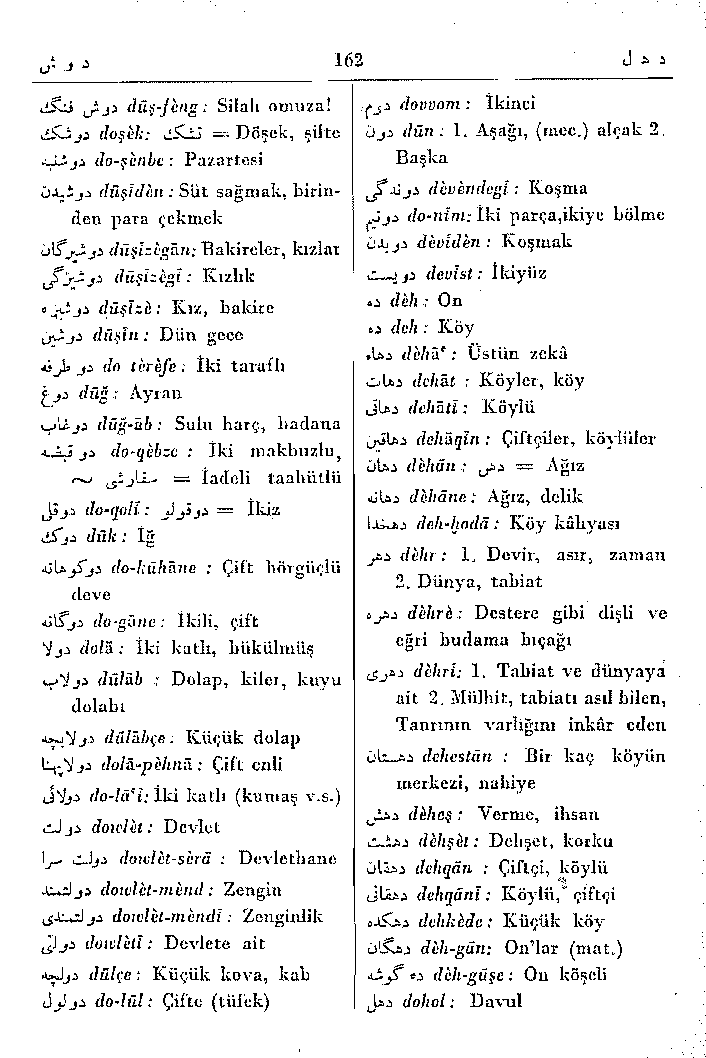 دوش 162 دهل
دوش فنگ dūş-fèng: Silah omuza!
دوشك doşèk: تشك = Döşek, şilte
دوشنبه do-şènbe: Pazartesi
دوشیدن dūşīdèn: Süt sağmak, birin-
den para çekmek
دوشیزگان dūşīzègān: Bakireler, kızlar
دوشیزگی dūşīzègī: Kızlık
دوشیزه dūşīzè: Kız, bakire
دوشین dūşīn: Dün gece
دو طرفه do tèrèfe: İki taraflı
دوغ dūğ: Ayran
دوغاب dūğ-āb: Sulu harç, badana
دو قبضه do-qèbze: İki makbuzlu,
سفارشی ~ = İadeli taahütlü
دوقلی do-qolī: دوقولو = İkiz
دوك dūk: İğ
دوکوهانه do-kūhāne : Çift hörgüçlü
deve
دوگانه do-gāne: İkili, çift
دولا dolā: İki katlı, bükülmüş
دولاب dūlāb : Dolap, kiler, kuyu
dolabı
دولابچه dūlābçe: Küçük dolap
دولاپهنا dolā-pèhnā: Çift enli
دولائی do-lā'ī: İki katlı (kumaş v.s.)
دولت dowlèt: Devlet
دولت سرا dowlèt-sèrā : Devlethane
دولتمند dowlèt-mènd: Zengin
دولتمندی dowlèt-mèndī: Zenginlik
دولتی dowlètī: Devlete ait
دولچه dūlçe: Küçük kova, kab
دولول do-lūl: Çifte (tüfek)
دوم dovvom: İkinci
دون dūn: 1. Aşağı, (mec.) alçak 2.
Başka
دوندگی dèvèndegī: Koşma
دونیم do-nīm: İki parça,ikiye bölme
دویدن dèvīdèn: Koşmak
دویست devīst: İkiyüz
ده dèh: On
ده deh: Köy
دهاء dèhā': Üstün zekâ
دهات dehāt : Köyler, köy
دهاتی dehātī: Köylü
دهاقین dehāqīn: Çiftçiler, köylüler
دهان dèhān: دهن = Ağız
دهانه dèhāne: Ağız, delik
دهخدا deh-ḫodā: Köy kâhyası
دهر dèhr: 1. Devir, asır, zaman
2. Dünya, tabiat
دهره dèhrè: Destere gibi dişli ve
eğri budama bıçağı
دهری dèhrī: 1. Tabiat ve dünyaya
ait 2. Mülhit, tabiatı asıl bilen,
Tanrının varlığını inkâr eden
دهستان dehestān : Bir kaç köyün
merkezi, nahiye
دهش dèheş: Verme, ihsan
دهشت dèhşèt: Dehşet, korku
دهقان dehqān : Çiftçi, köylü
دهقانی dehqānī: Köylü, çiftçi
دهکده dehkède: Küçük köy
دهگان dèh-gān: On'lar (mat.)
ده گوشه dèh-gūşe: On köşeli
دهل dohol: Davul